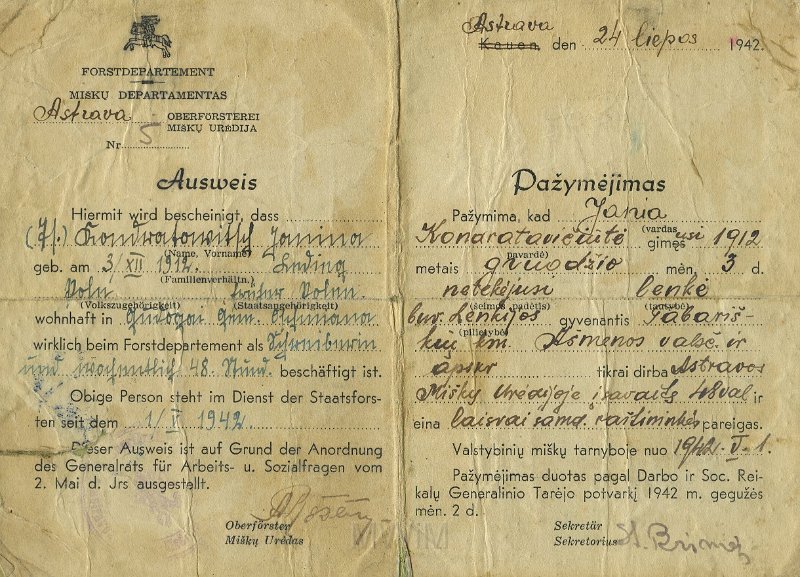 FORSTDEPARTEMENT
MIŠKŲ DEPARTAMENTAS
Astrava OBERFÖRSTEREI
MIŠKŲ URĖDIJA
Nr. 5
Ausweis
Hiermit wird bescheinigt, dass
Kondratowitsch Janina
(Name, Vorname)
geb. am 3/XII 1912. Ledig
(Familienverhältn.)
Polin früher Polen
(Volkszugehörigkeit) (Staatsangehörigkeit)
wohnhaft in Gudogai Gem. Aschmiana
wirklich beim Forstdepartement als Schreiberin
und wöchentlich 48. Stund. beschäftigt ist.
Obige Person steht im Dienst der Staatsfors-
ten seit dem 1/V 1942
Dieser Ausweis ist auf Grund der Anordnung
des Generalrats für Arbeits- u. Sozialfragen vom
2. Mai d. Jrs ausgestellt.
Oberförster
Miškų Urėdas
Astrava
Kauen, den 24 liepos 1942.
Pažymėjimas
Pažymima, kad Janina
(vardas
Kondratavičaitė gimęs usi 1912
pavardė)
metais gruodžio mėn. 3 d.
netekėjusi lenkė
(šeimos padėtis) (tautybė)
buv. Lenkijos gyvenantis Tabariš-
(pilietybė)
kių km. Ašmenos valsč. ir
apskr tikrai dirba Astravos
Miškų Urėdijoje į savaitę 48 val ir
eina laisvai samd. raštininkės pareigas.
Valstybinių miškų tarnyboje nuo 1942. V. 1.
Pažymėjimas duotas pagal Darbo ir Soc. Rei-
kalų Generalinio Tarėjo potvarkį 1942 m. gegužės
mėn. 2 d.
Sekretär
Sekretorius